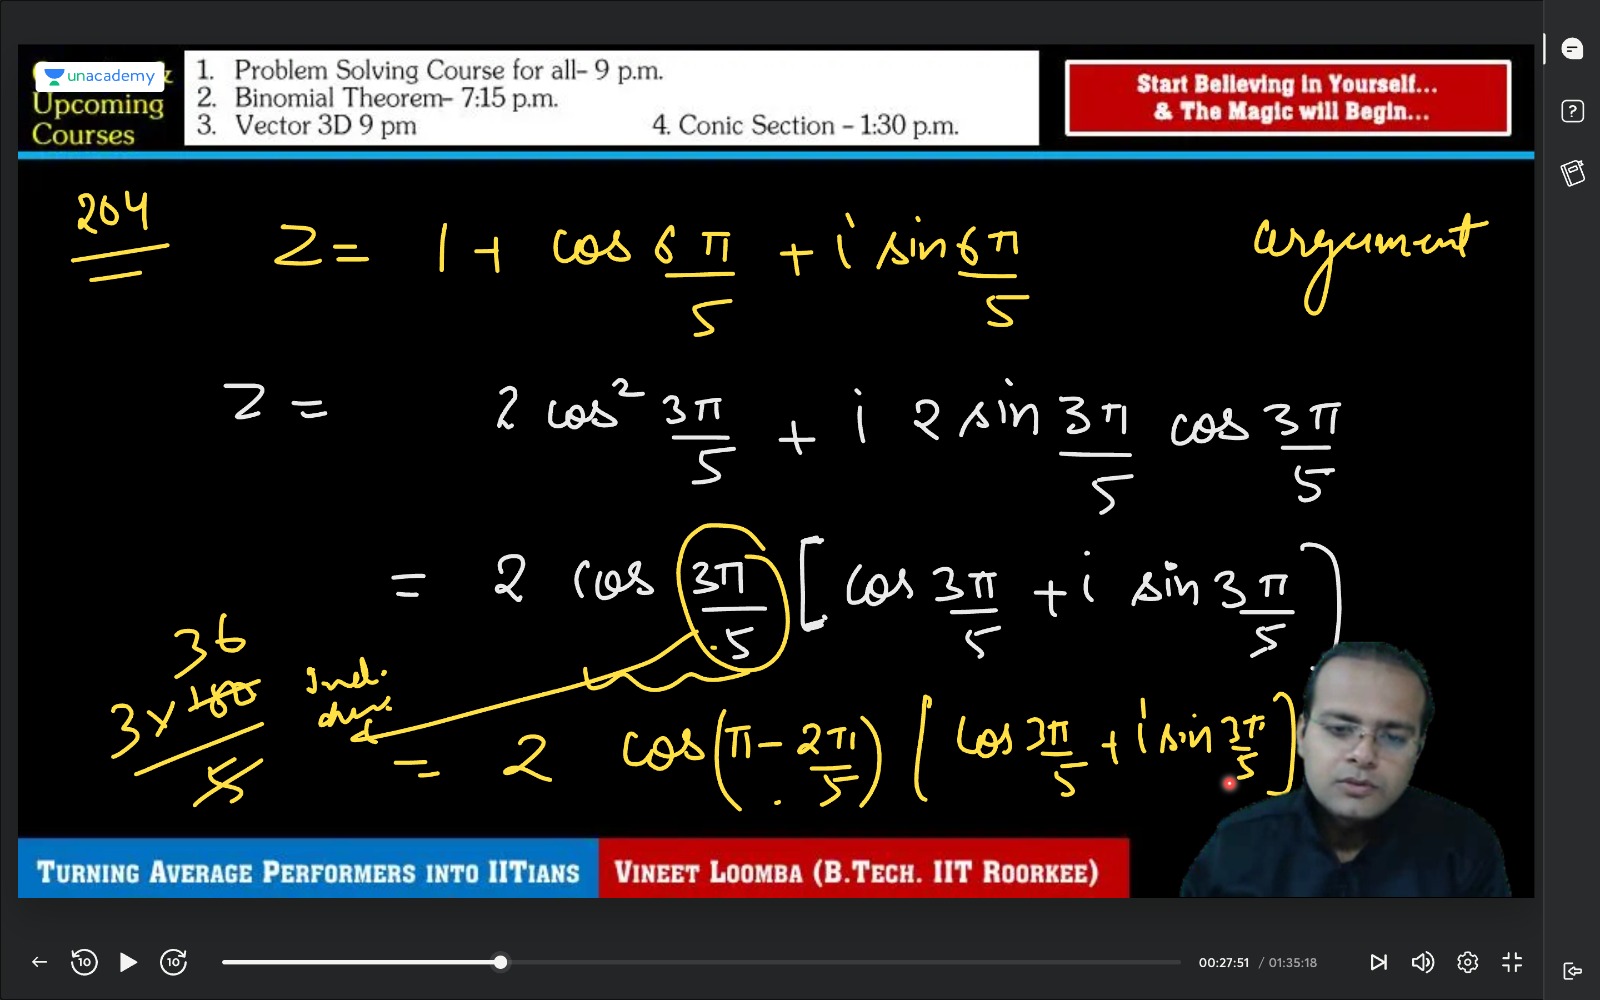 unacademy
Upcoming
Courses
1. Problem Solving Course for all– 9 p.m.
2. Binomial Theorem– 7:15 p.m.
3. Vector 3D 9 pm 4. Conic Section – 1:30 p.m.
Start Believing in Yourself...
& The Magic will Begin...
204
Z = 1 + cos 6π/5 + i sin 6π/5 argument
Z = 2 cos² 3π/5 + i 2 sin 3π/5 cos 3π/5
= 2 cos 3π/5 [cos 3π/5 + i sin 3π/5]
36
3 × 180 / 5
= 2 cos(π – 2π/5) [cos 3π/5 + i sin 3π/5]
TURNING AVERAGE PERFORMERS INTO IITIANS VINEET LOOMBA (B.TECH. IIT ROORKEE)
10 10 00:27:51 / 01:35:18